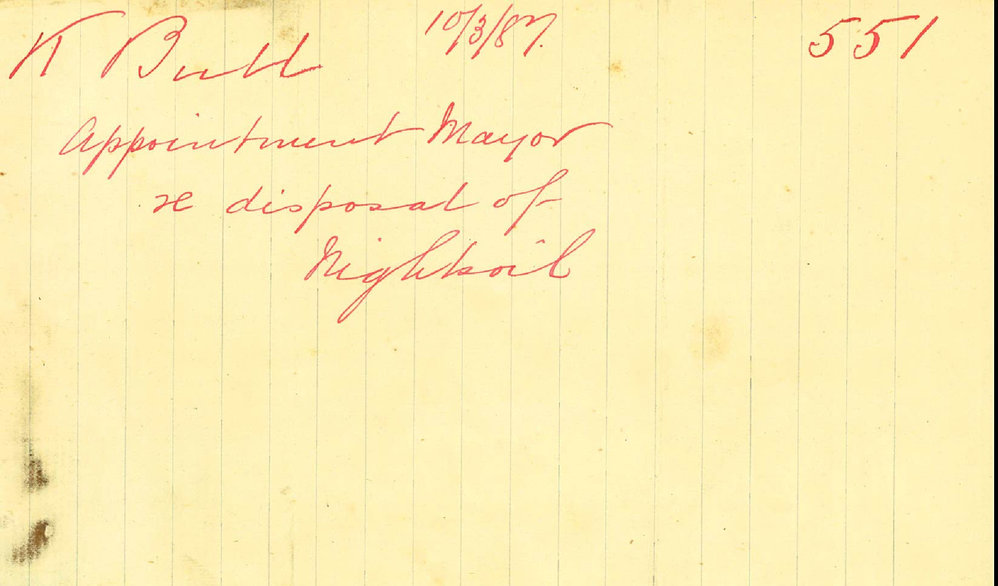 K Bull 10/3/87. 551
Appointment Mayor
re disposal of
Nightsoil